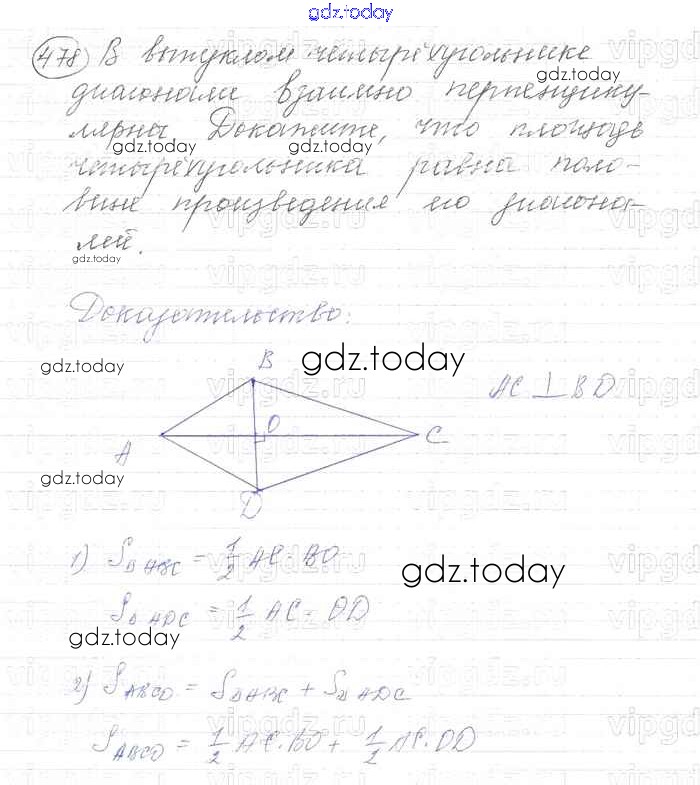 gdz.today
478 В выпуклом четырёхугольнике
gdz.today
диагонали взаимно перпендику-
лярны. Докажите, что площадь
gdz.today
gdz.today
четырёхугольника равна поло-
вине произведения его диагона-
лей.
gdz.today
vipgdz.ru
Доказательство:
gdz.today
gdz.today
B
AC ⊥ BD
O
A
C
gdz.today
D
1) SΔABC = 1/2 AC · BO
gdz.today
SΔADC = 1/2 AC · OD
gdz.today
2) SABCD = SΔABC + SΔADC
SABCD = 1/2 AC · BO + 1/2 AC · OD